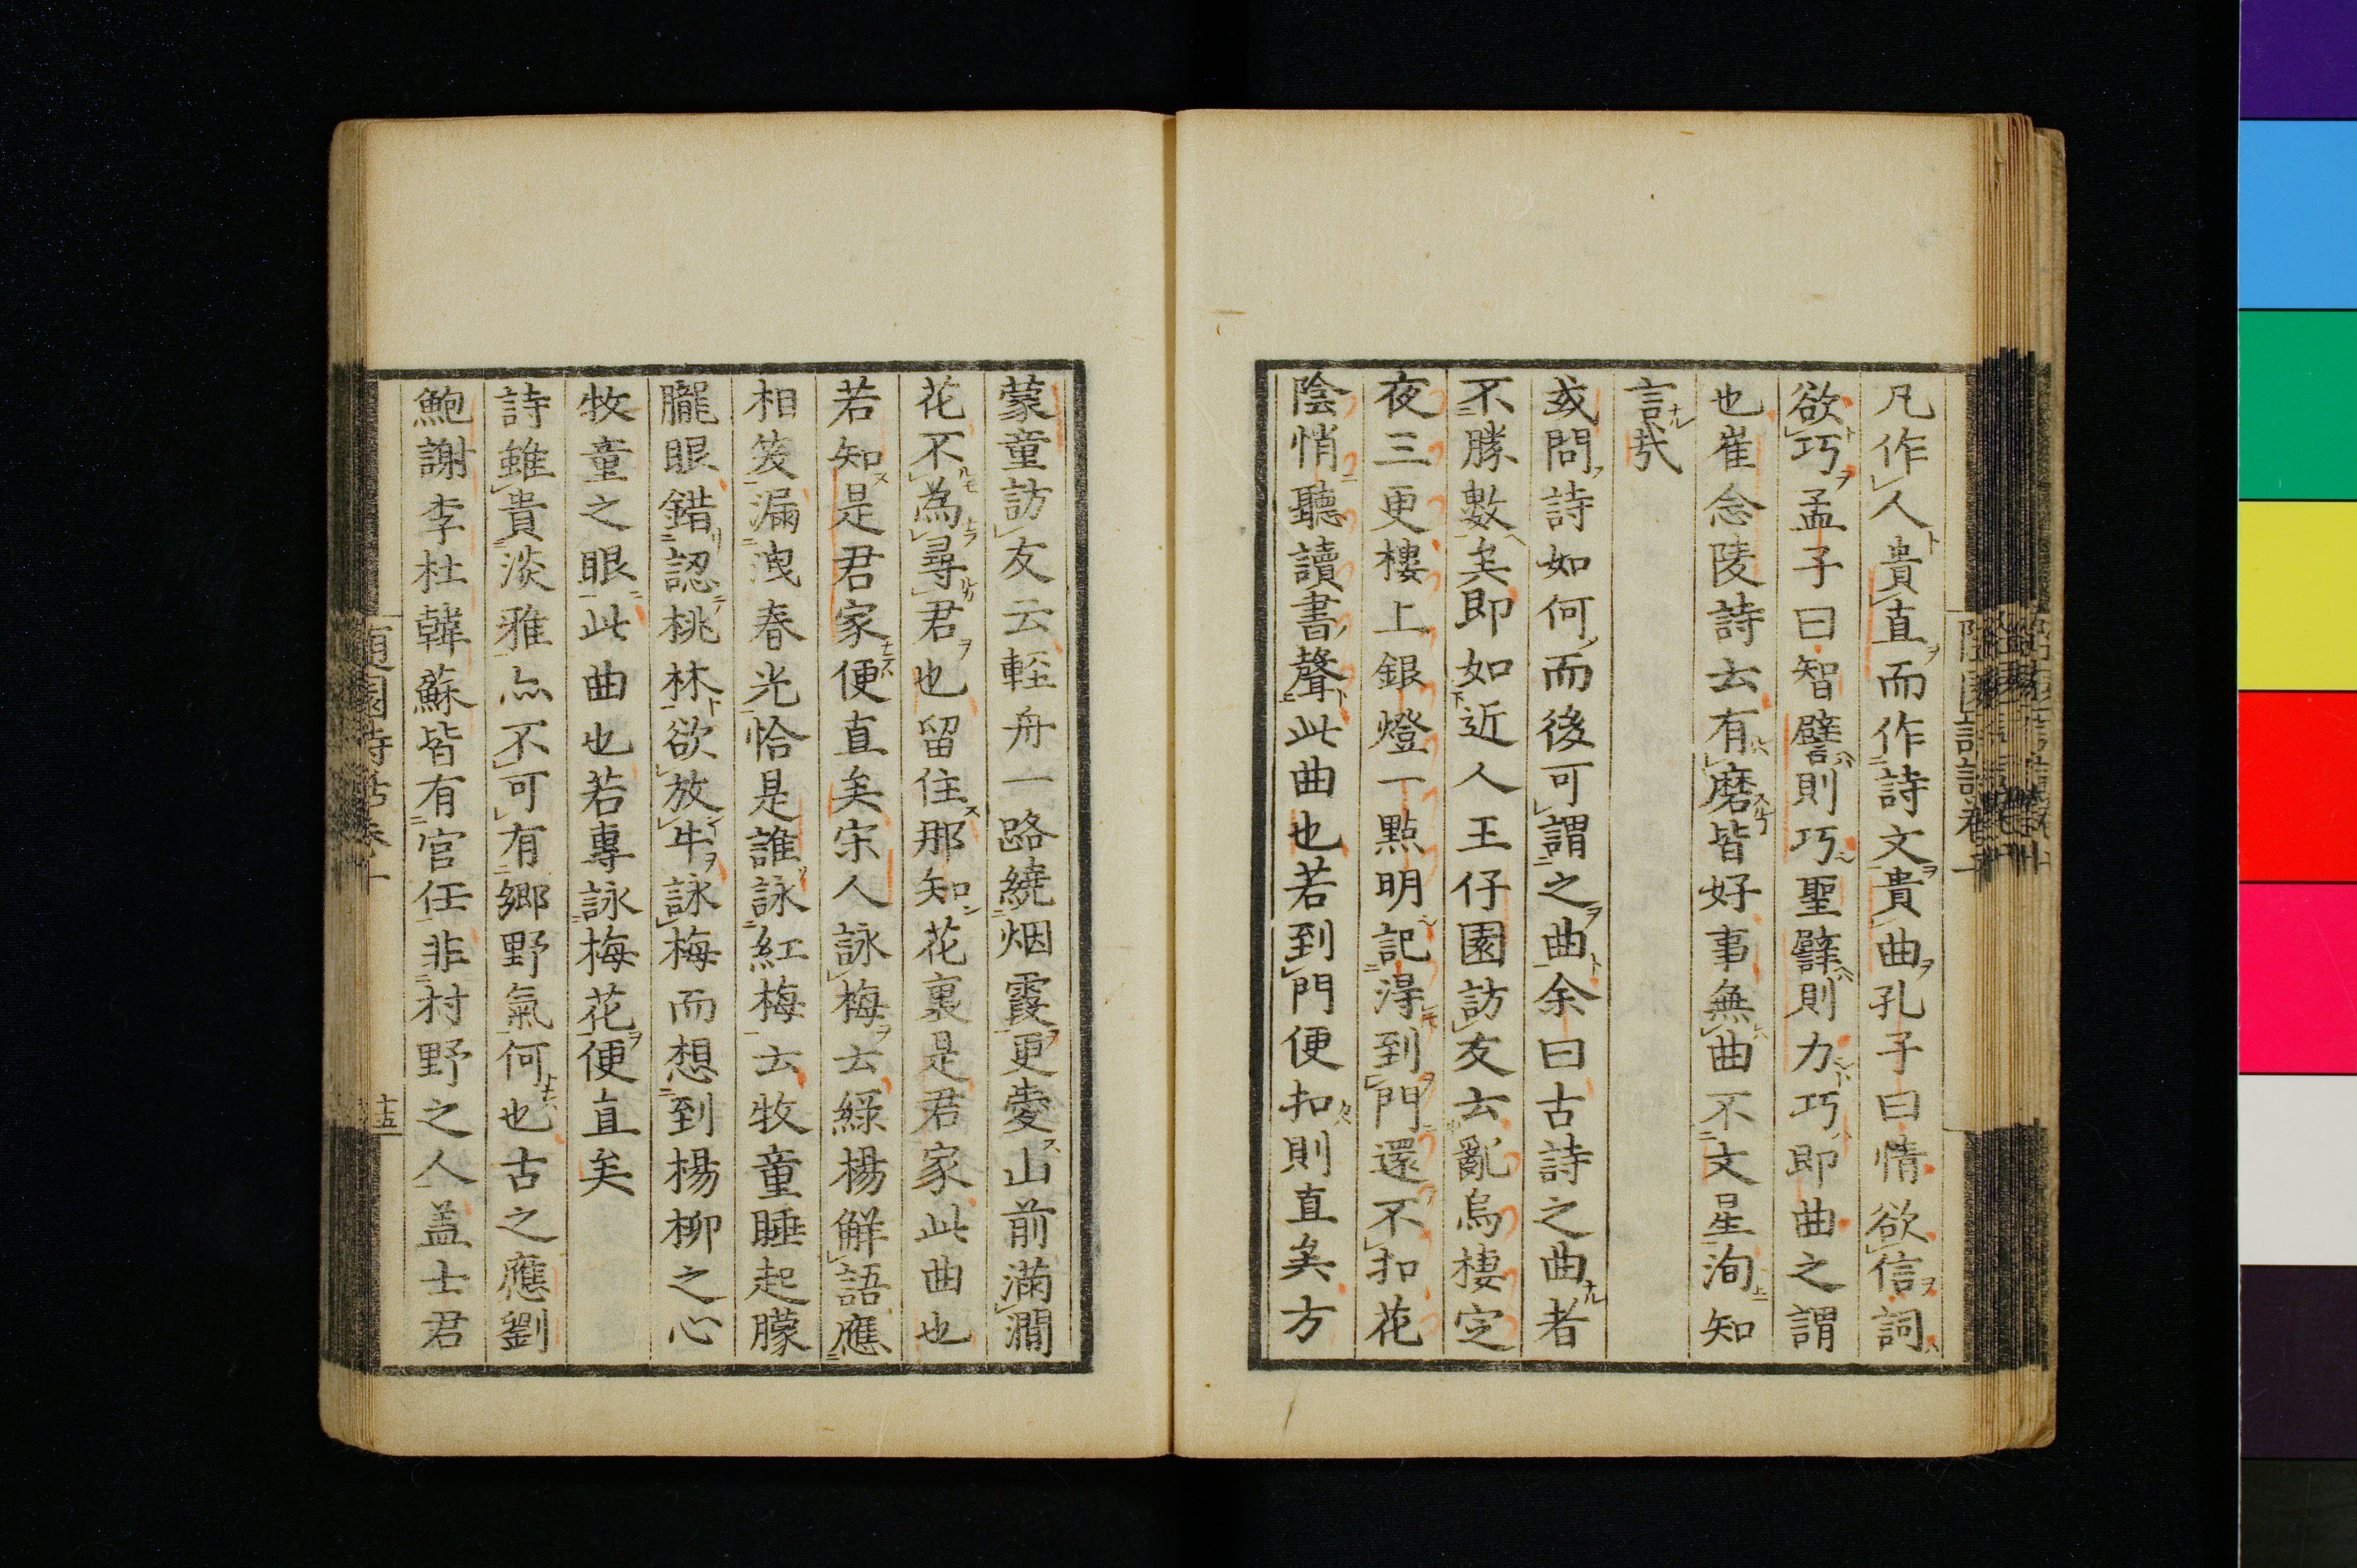 凡作人貴直而作詩文貴曲孔子曰情欲信詞
欲巧孟子曰智譬則巧聖譬則力巧即曲之謂
也崔念陵詩云有磨皆好事無曲不文星洵知
言㢤
或問詩如何而後可謂之曲余曰古詩之曲者
不勝數矣即如近人王仔園訪友云亂烏棲定
夜三更樓上銀燈一點明記得到門還不扣花
陰悄聽讀書聲此曲也若到門便扣則直矣方
蒙童訪友云輕舟一路繞烟霞更愛山前滿澗
花不為尋君也留住那知花裏是君家此曲也
若知是君家便直矣宋人詠梅云綠楊解語應
相笑漏洩春光恰是誰詠紅梅云牧童睡起朦
朧眼錯認桃林欲放牛詠梅而想到楊柳之心
牧童之眼此曲也若專詠梅花便直矣
詩雖貴淡雅亦不可有鄉野氣何也古之應劉
鮑謝李杜韓蘇皆有官任非村野之人盖士君
隨園詩話卷十
十五